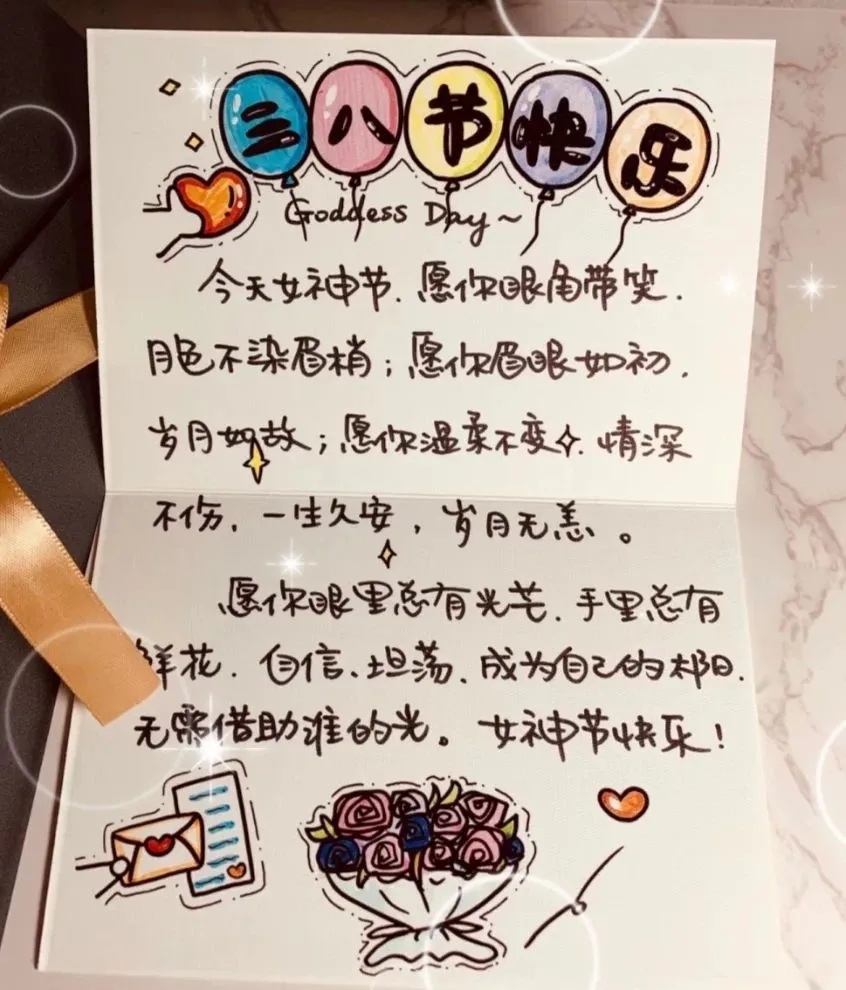 三八节快乐
Goddess Day~
今天女神节.愿你眼角带笑.
月色不染眉梢;愿你眉眼如初.
岁月如故;愿你温柔不变.情深
不伤,一生久安,岁月无恙。
愿你眼里总有光芒.手里总有
鲜花.自信、坦荡.成为自己的太阳.
无需借助谁的光。女神节快乐!